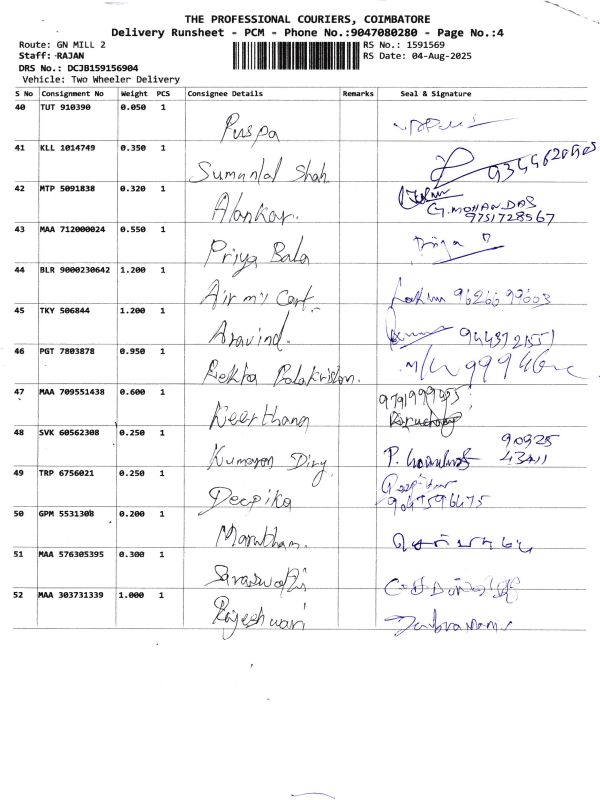 THE PROFESSIONAL COURIERS, COIMBATORE
Delivery Runsheet - PCM - Phone No.:9047080280 - Page No.:4
Route: GN MILL 2 RS No.: 1591569
Staff: RAJAN RS Date: 04-Aug-2025
DRS No.: DCJB159156904
Vehicle: Two Wheeler Delivery
S No Consignment No Weight PCS Consignee Details Remarks Seal & Signature
40 TUT 910390 0.050 1
Puspa
41 KLL 1014749 0.350 1
Sumanlal Shah
42 MTP 5091838 0.320 1
Alankar. G.MOHAN DAS
9751728567
43 MAA 712000024 0.550 1
Priya Bala
44 BLR 9000230642 1.200 1
Air my Cart.
45 TKY 506844 1.200 1
Aravind.
46 PGT 7803878 0.950 1
Rekha Balakrishnan.
47 MAA 709551438 0.600 1
Keerthana
48 SVK 60562308 0.250 1
90925
Kumaran 43411
49 TRP 6756021 0.250 1
Deepika
50 GPM 5531308 0.200 1
Marutham.
51 MAA 576305395 0.300 1
Saraswathi
52 MAA 303731339 1.000 1
Rajeshwari